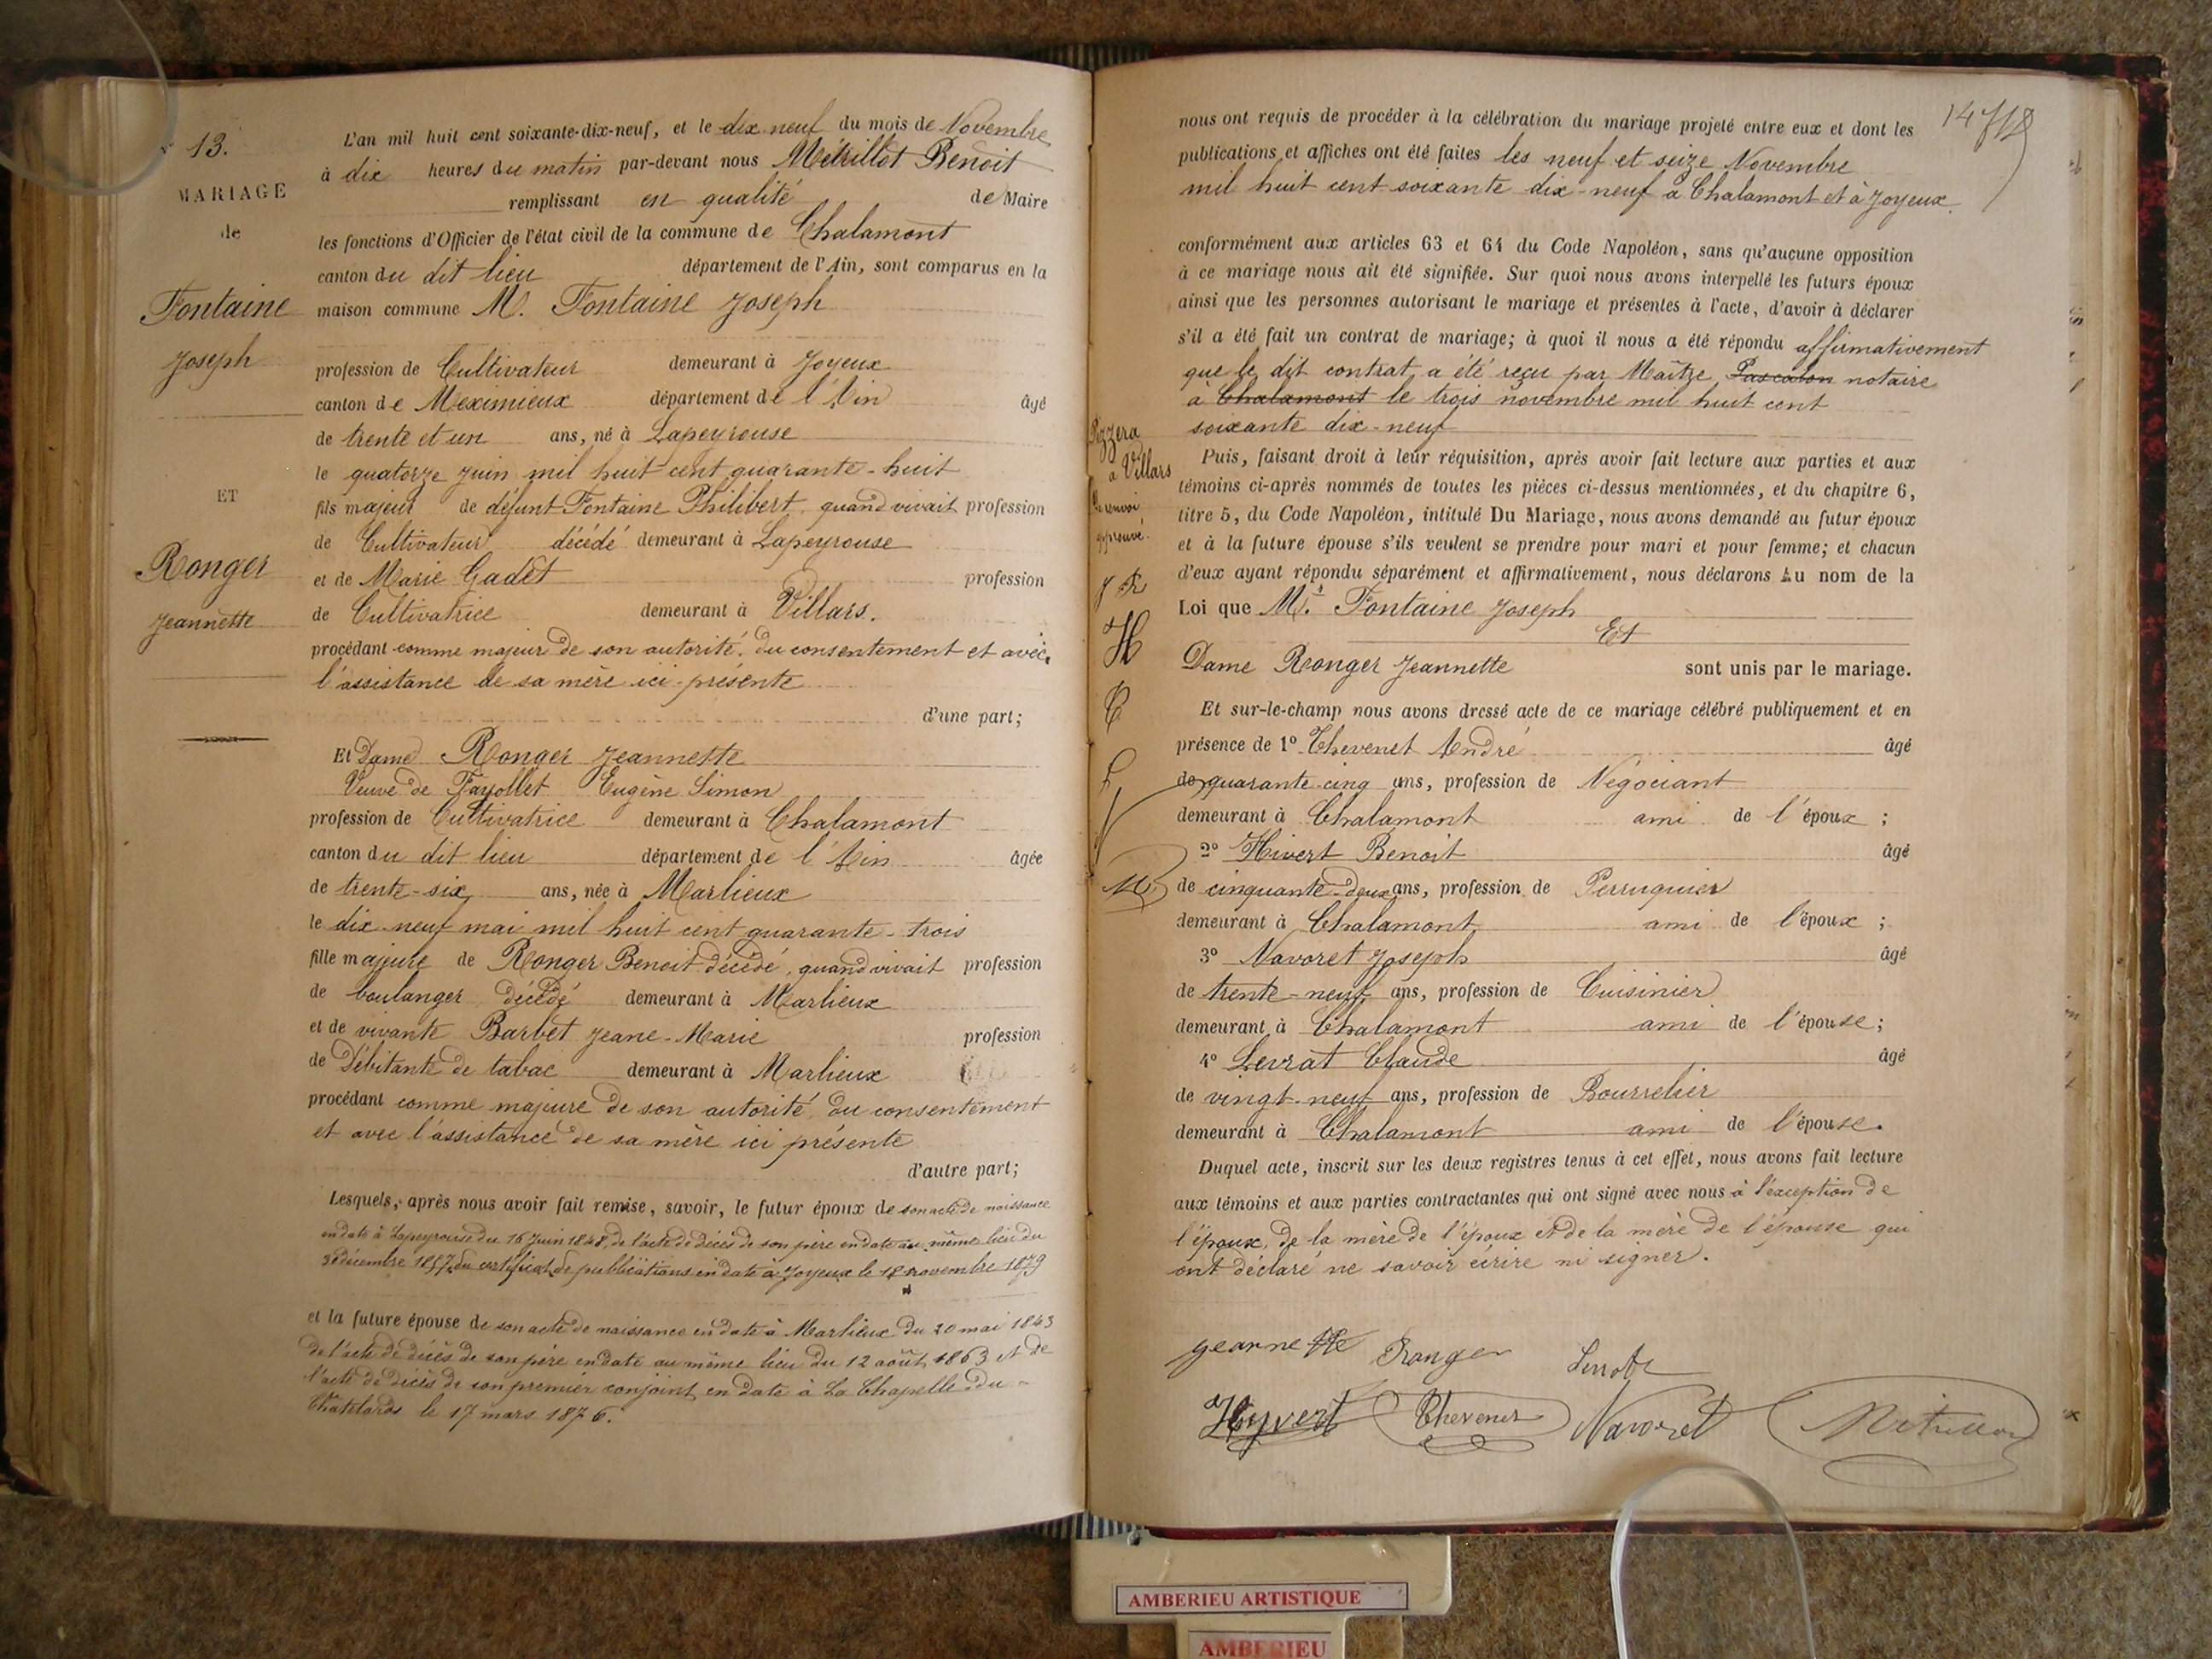 N° 13.
MARIAGE
de
Fontaine
Joseph
ET
Ronger
Jeannette
L'an mil huit cent soixante-dix-neuf, et le dix neuf du mois de Novembre
à dix heures du matin par-devant nous Métrillot Benoit
remplissant en qualité de Maire
les fonctions d'Officier de l'état civil de la commune de Chalamont
canton du dit lieu département de l'Ain, sont comparus en la
maison commune M. Fontaine Joseph
profession de Cultivateur demeurant à Joyeux
canton de Meximieux département de l'Ain âgé
de trente et un ans, né à Lapeyrouse
le quatorze Juin mil huit cent quarante-huit
fils majeur de défunt Fontaine Philibert, quand vivait profession
de Cultivateur décédé demeurant à Lapeyrouse
et de Marie Gadet profession
de Cultivatrice demeurant à Villars.
procédant comme majeur de son autorité, du consentement et avec
l'assistance de sa mère ici présente
d'une part;
Et Dame Ronger Jeannette
Veuve de Fayollet Eugène Simon
profession de Cultivatrice demeurant à Chalamont
canton du dit lieu département de l'Ain âgée
de trente-six ans, née à Marlieux
le dix-neuf mai mil huit cent quarante-trois
fille majeure de Ronger Benoit décédé, quand vivait profession
de boulanger décédé demeurant à Marlieux
et de vivante Barbet Jeane-Marie profession
de Débitante de tabac demeurant à Marlieux
procédant comme majeure de son autorité du consentement
et avec l'assistance de sa mère ici présente
d'autre part;
Lesquels, après nous avoir fait remise, savoir, le futur époux de son acte de naissance
en date à Lapeyrouse du 16 Juin 1848, de l'acte de décès de son père en date au même lieu du
30 décembre 1857, du certificat de publications en date à Joyeux le 18 novembre 1879
et la future épouse de son acte de naissance en date à Marlieux du 20 mai 1843
de l'acte de décès de son père en date au même lieu du 12 août 1863 et de
l'acte de décès de son premier conjoint en date à La Chapelle du
Chatelards le 17 mars 1876.
nous ont requis de procéder à la célébration du mariage projeté entre eux et dont les
publications et affiches ont été faites les neuf et seize Novembre
mil huit cent soixante dix-neuf à Chalamont et à Joyeux
conformément aux articles 63 et 64 du Code Napoléon, sans qu'aucune opposition
à ce mariage nous ait été signifiée. Sur quoi nous avons interpellé les futurs époux
ainsi que les personnes autorisant le mariage et présentes à l'acte, d'avoir à déclarer
s'il a été fait un contrat de mariage; à quoi il nous a été répondu affirmativement
que le dit contrat a été reçu par Maître Pascalon notaire
à Chalamont le trois novembre mil huit cent
soixante dix-neuf
Pezzera
à Villars
Un renvoi
approuvé.
J R
H
C
L
N
M
Puis, faisant droit à leur réquisition, après avoir fait lecture aux parties et aux
témoins ci-après nommés de toutes les pièces ci-dessus mentionnées, et du chapitre 6,
titre 5, du Code Napoléon, intitulé Du Mariage, nous avons demandé au futur époux
et à la future épouse s'ils veulent se prendre pour mari et pour femme; et chacun
d'eux ayant répondu séparément et affirmativement, nous déclarons Au nom de la
Loi que Mr. Fontaine Joseph
Et
Dame Ronger Jeannette sont unis par le mariage.
Et sur-le-champ nous avons dressé acte de ce mariage célébré publiquement et en
présence de 1° Thevenet André âgé
de quarante-cinq ans, profession de Négociant
demeurant à Chalamont ami de l'époux ;
2° Hivert Benoit âgé
de cinquante-deux ans, profession de Perruquier
demeurant à Chalamont ami de l'époux ;
3° Navoret Joseph âgé
de trente-neuf ans, profession de Cuisinier
demeurant à Chalamont ami de l'épouse;
4° Levrat Claude âgé
de vingt-neuf ans, profession de Bourrelier
demeurant à Chalamont ami de l'épouse.
Duquel acte, inscrit sur les deux registres tenus à cet effet, nous avons fait lecture
aux témoins et aux parties contractantes qui ont signé avec nous à l'exception de
l'époux, de la mère de l'époux et de la mère de l'épouse qui
ont déclaré ne savoir écrire ni signer.
Jeannette Ronger
Hyvert Thevenet Navoret
AMBERIEU ARTISTIQUE
AMBERIEU